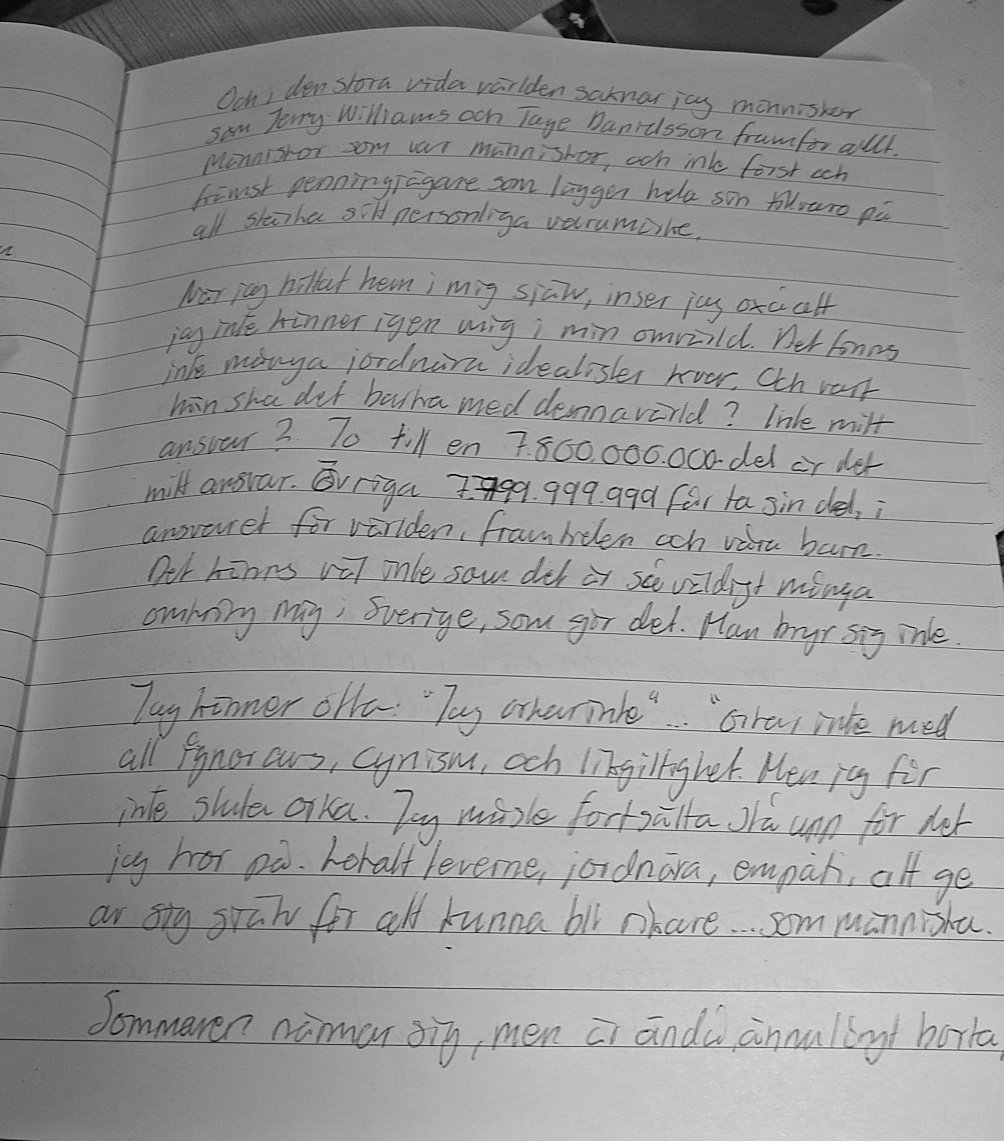 Och i den stora vida världen saknar jag människor
som Jerry Williams och Tage Danielsson framför allt.
Människor som var människor, och inte först och
främst penningjägare som lägger hela sin tillvaro på
att stärka sitt personliga varumärke.
När jag hittat hem i mig själv, inser jag oxå att
jag inte känner igen mig i min omvärld. Det finns
inte många jordnära idealister kvar. Och vart
hän ska det barka med denna värld? Inte mitt
ansvar? Jo till en 7.800.000.000-del är det
mitt ansvar. Övriga 7.799.999.999 får ta sin del, i
ansvaret för världen, framtiden och våra barn.
Det känns väl inte som det är så väldigt många
omkring mig i Sverige, som gör det. Man bryr sig inte.
Jag känner ofta: "Jag orkar inte"... "orkar inte med
all ignorans, cynism, och likgiltighet. Men jag får
inte sluta orka. Jag måste fortsätta stå upp för det
jag tror på. Lokalt leverne, jordnära, empati, att ge
av sig själv för att kunna bli rikare... som människa.
Sommaren närmar sig, men är ändå ännu långt borta,